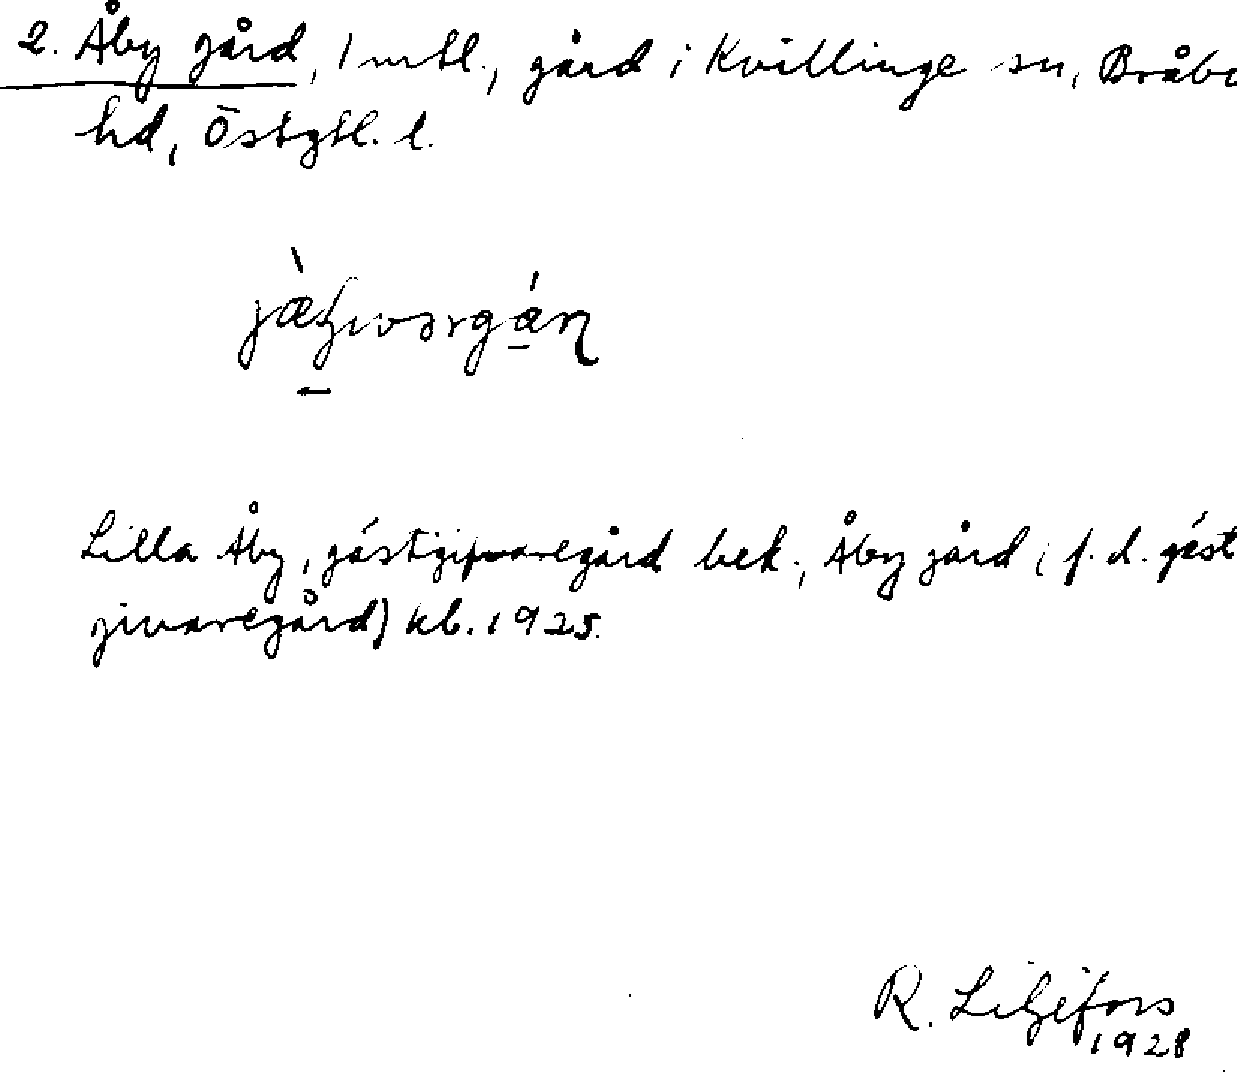 2. Åby gård, 1 mtl., gård i Kvillinge sn, Bråbo
hd, Östgtl. l.
Lilla Åby, gästgifvaregård bek., Åby gård (f. d. gäst
givaregård) kb. 1925.
R. Liljefors
1928